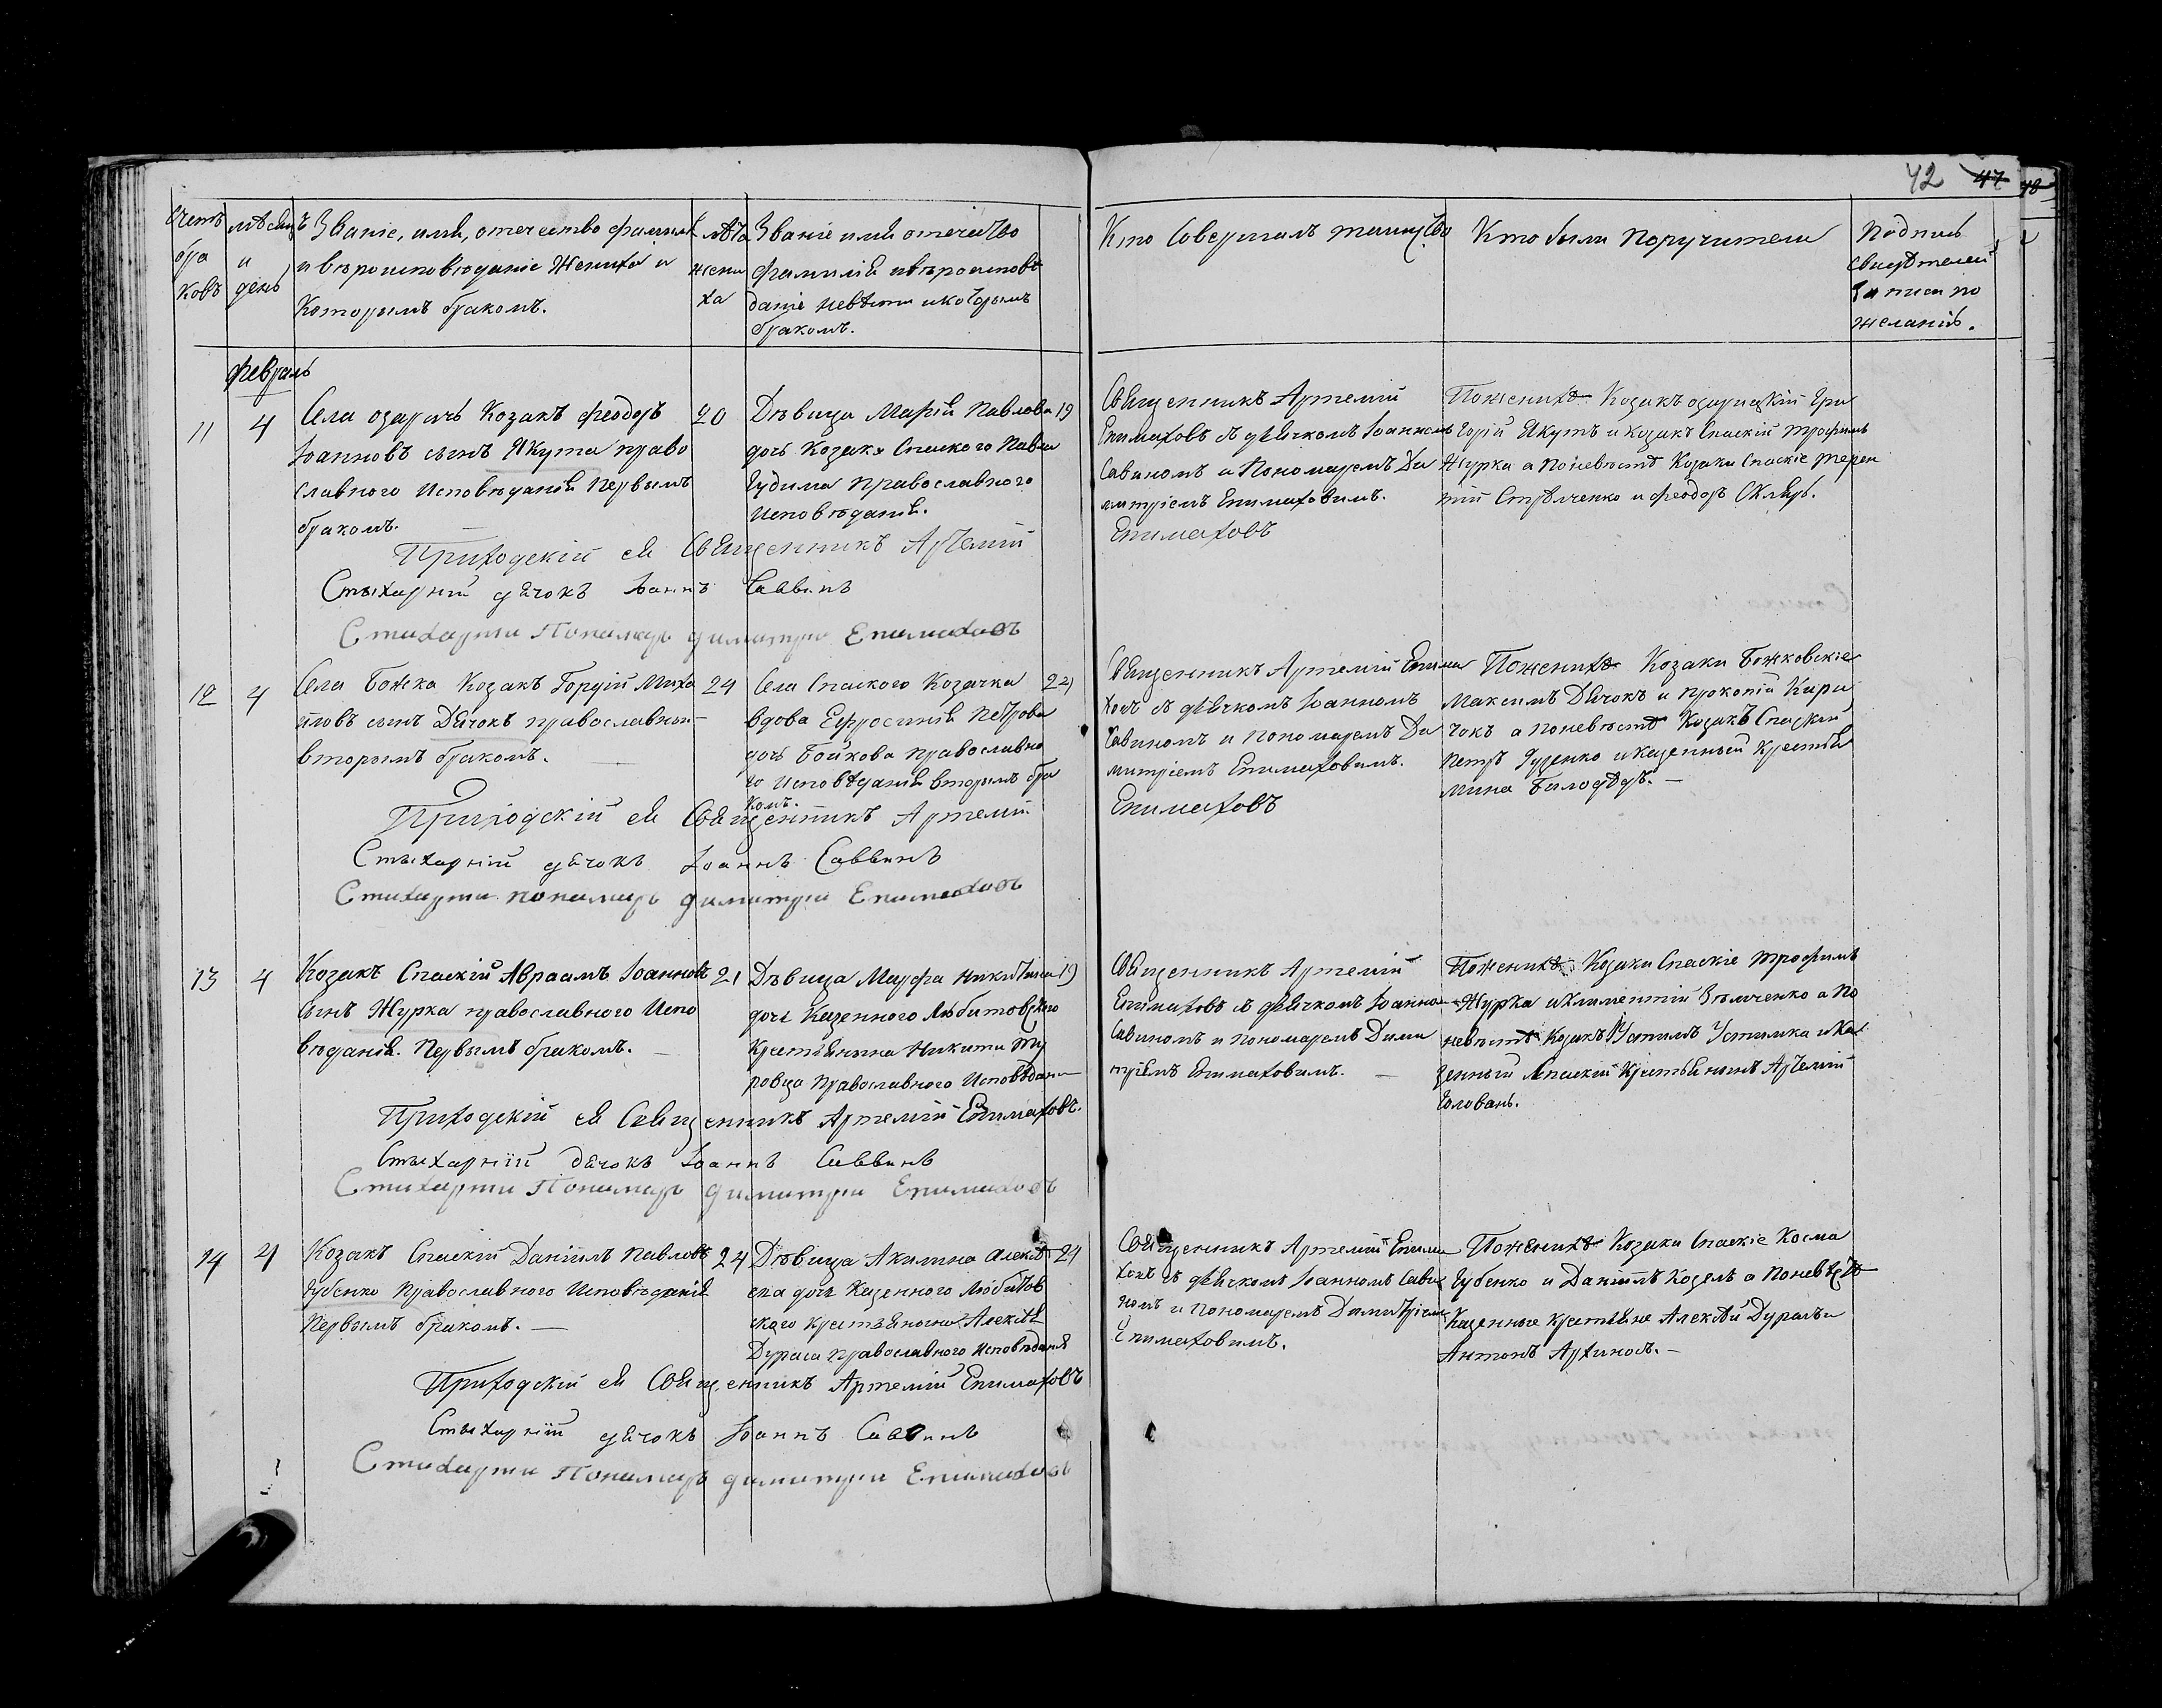 42 47 48
Счетъ бра ковъ
мѣсяцъ и день
Званіе, имя, отечество фамилія
и вѣроисповѣданіе Жениха и
Которымъ бракомъ.
лѣта жени ха
Званіе имя отечество
фамилія и вѣроисповѣ
даніе невѣсты и которымъ
бракомъ.
Кто Совершалъ таинство
Кто были Поручители
Подпись
свидѣтелей
записи по
желанію.
февраль
11 4
Села озаричъ Козакъ феодоръ 20
Іоанновъ сынъ Якута право
славного Исповѣданія Первымъ
бракомъ.
Дѣвица Марія Павлова 19
дочь Козака Спаского Павла
Гудима Православного
Исповѣданія.
Священникъ Артемій
Епимаховъ съ дьячкомъ Іоанномъ
Савиномъ и Пономаремъ Ди
митріемъ Епимаховимъ.
По женихѣ Козакъ озарицкій Гри
горій Якутъ и Козакъ Спаскій трофимъ
Журка а по невѣстѣ Козаки Спаскіе терен
тій Стрѣлченко и феодоръ Скляръ.
Приходскій ея Священникъ Артемій Епимаховъ
Стыхарній дячокъ Іоаннъ Саввинъ
Стихарти Понамаръ димитри Епимаховъ
12 4
Села Божка Козакъ Горгій Миха 24
иловъ сынъ Дячокъ православной
вторымъ бракомъ.
Села Спаского Козачка 24
вдова Ефросинія Петрова
дочь Бойкова Православно
го Исповѣданія вторымъ бра
комъ.
Священникъ Артемій Епима
ховъ съ дьячкомъ Іоанномъ
Савиномъ и пономаремъ Ди
митріемъ Епимаховимъ.
По женихѣ Козаки Божковскіе
Максимъ Дячокъ и Прокопій Кири
чокъ а по невѣстѣ Козакъ Спаскій
Петръ Гуценко и казенный крестья
Мина Билодѣдъ.
Приходскій ея Священникъ Артемій Епимаховъ
Стыхарній дячокъ Іоаннъ Саввинъ
Стихарти понамаръ димитри Епимаховъ
13 4
Козакъ Спаскій Авраамъ Іоанновъ 21
сынъ Журка православного Испо
вѣданія. Первымъ бракомъ.
Дѣвица Марфа Никитина 19
дочь Казенного Любитовского
Крестьянина Никиты
Православного Исповѣдани
Священникъ Артемій
Епимаховъ съ дьячкомъ Іоанно
Савиномъ и пономаремъ Дими
тріемъ Епимаховимъ.
По женихѣ Козаки Спаскіе трофимъ
Журка и Климентій а по
невѣстѣ Козакъ Устимъ Устимка и Ка
зенный Спаскій Крестьянинъ Артемій
Головань.
Приходскій ея Священникъ Артемій Епимаховъ.
Стыхарніи дячокъ Іоаннъ Саввинъ
Стихарти Понамаръ димитри Епимаховъ
14 4
Козакъ Спаскій Даніилъ Павловъ 24
Губенко Православного Исповѣданія
Первымъ бракомъ.
Дѣвица Акилина Алексѣ 24
ева дочь Казенного Любитов
ского крестьянина Алексѣя
Дураса Православного Исповѣданя
Священникъ Артемій Епима
ховъ съ дьячкомъ Іоанномъ Сави
номъ и Пономаремъ Димитріемъ
Епимаховимъ.
По женихѣ Козаки Спаскіе Косма
Губенко и Даніилъ Козелъ а По невѣстѣ
Казенные крестьяне Алексѣй Дурасъ и
Антонъ Архиповъ.
Приходскій ея Священникъ Артемій Епимаховъ
Стыхарніи дячокъ Іоаннъ Саввинъ
Стихарти Понамаръ димитри Епимаховъ